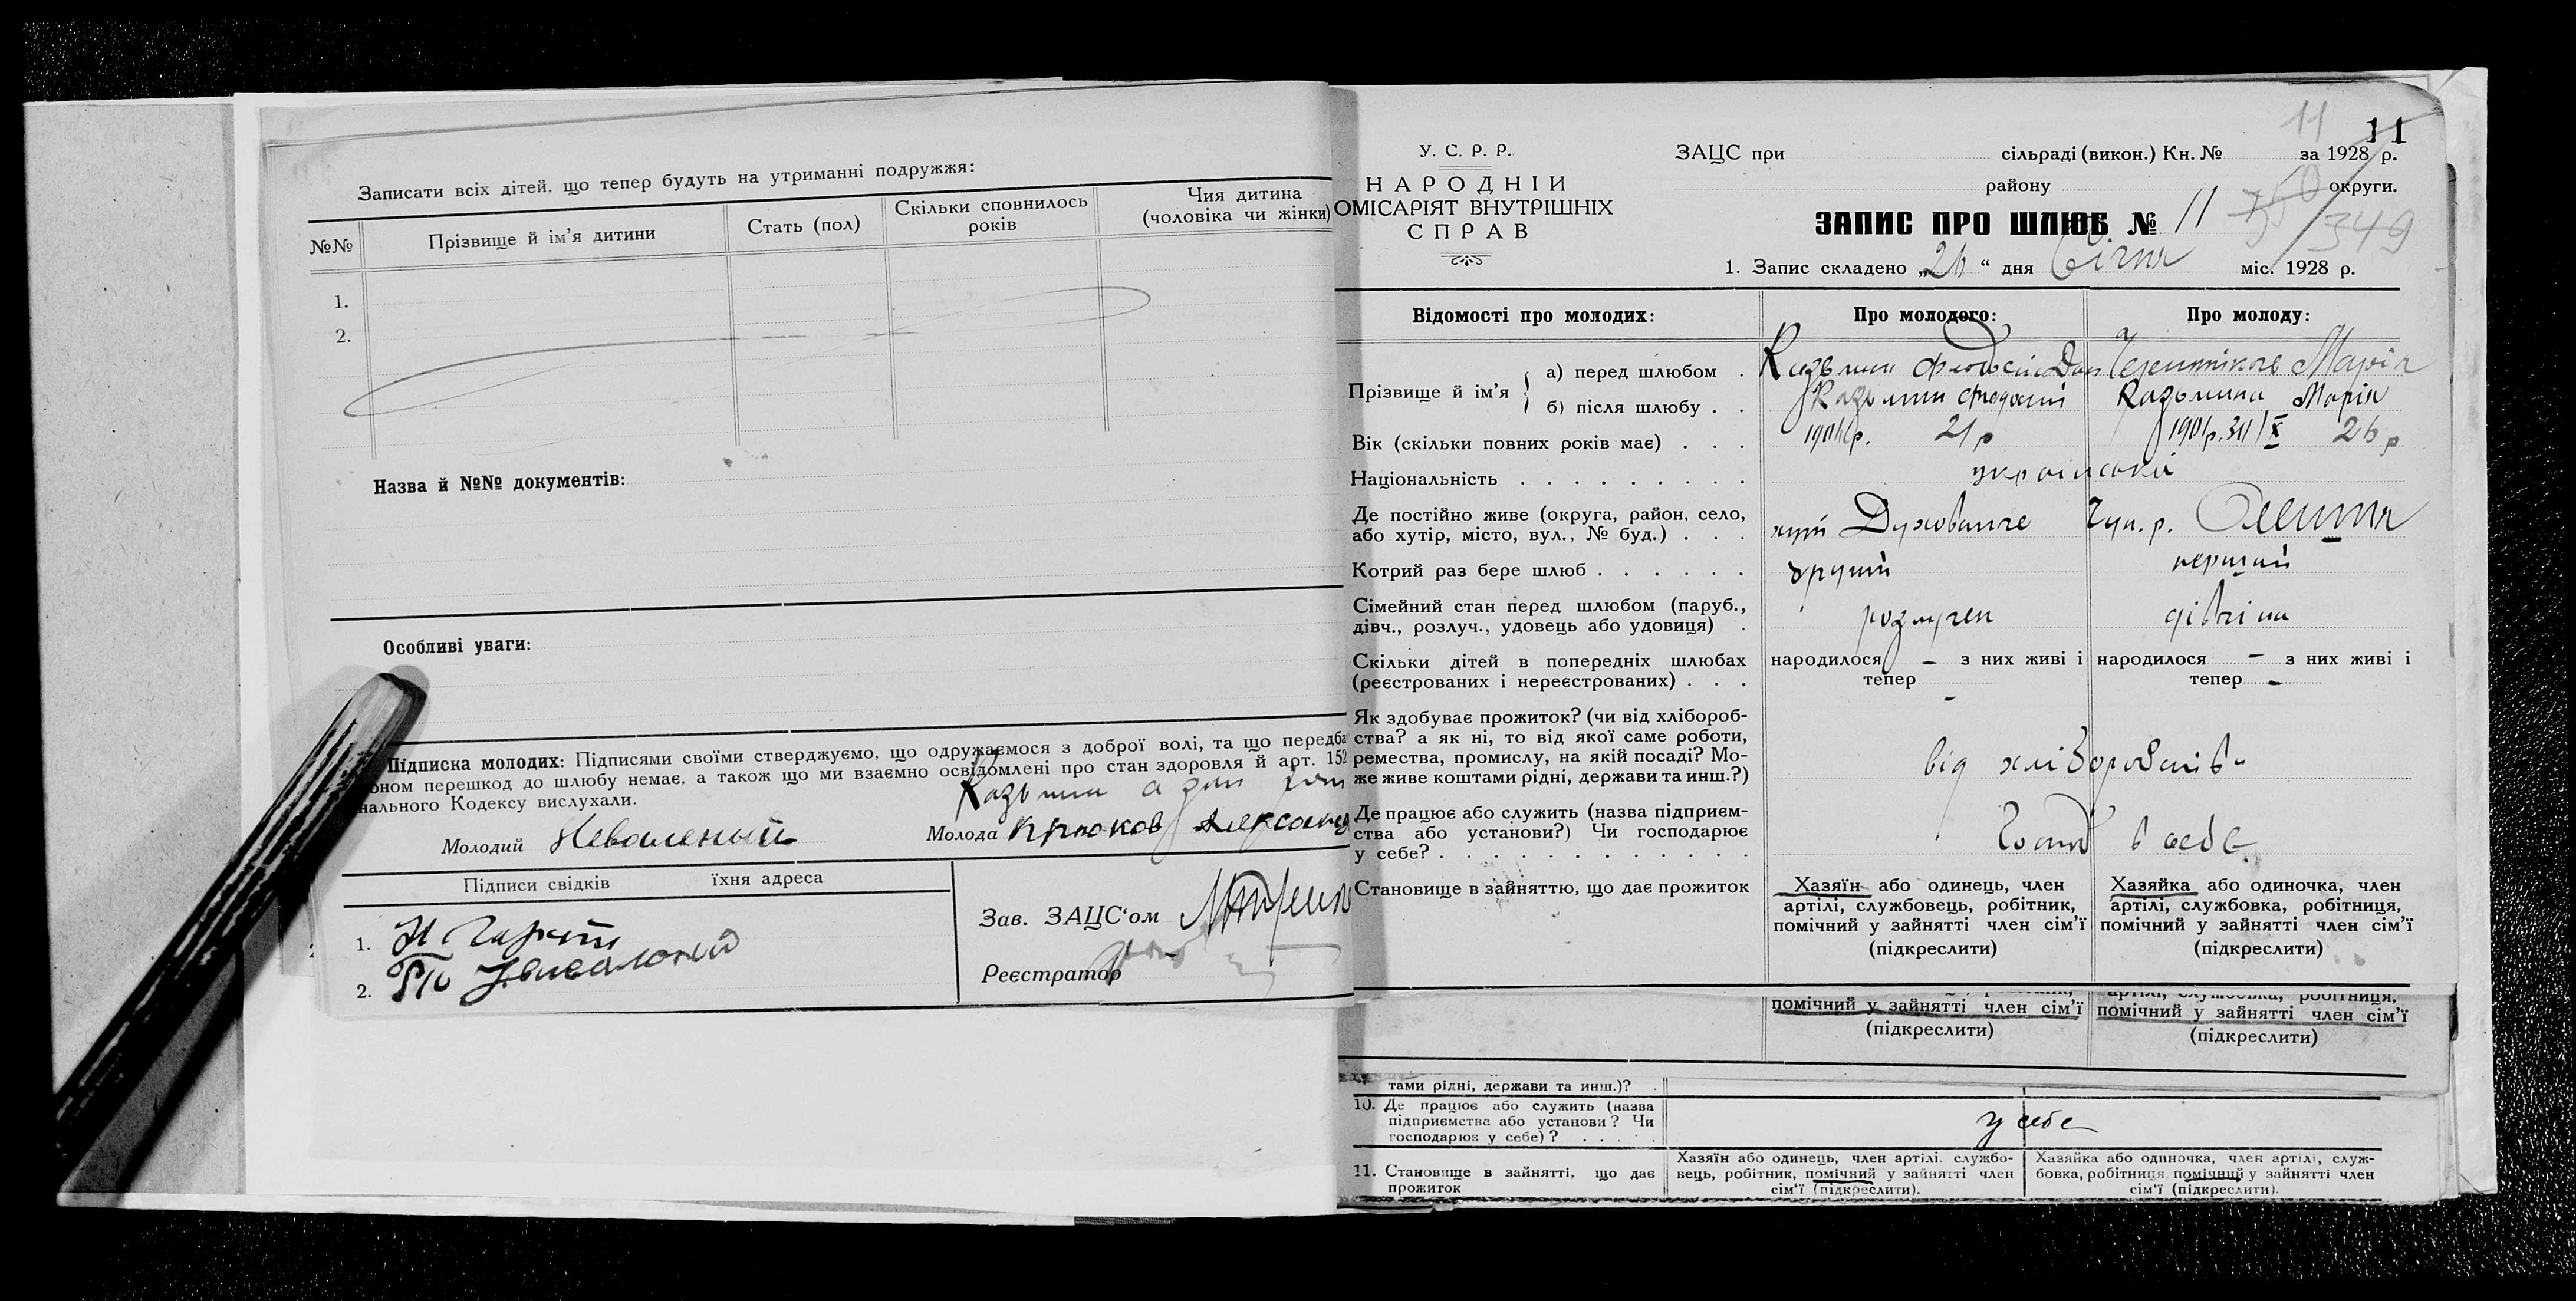 Записати всіх дітей, що тепер будуть на утриманні подружжя:
№№
Прізвище й ім'я дитини
Стать (пол)
Скільки сповнилось
років
Чия дитина
(чоловіка чи жінки)
1.
2.
Назва й №№ документів:
Особливі уваги:
Підписка молодих: Підписями своїми стверджуємо, що одружаємося з доброї волі, та що передба
оном перешкод до шлюбу немає, а також що ми взаємно освідомлені про стан здоровля й арт. 152
нального Кодексу вислухали.
Молодий
Молода Крюков
Підписи свідків їхня адреса
1.
2.
Зав. ЗАЦС'ом
Реєстратор
11 11
У. С. Р. Р.
НАРОДНІЙ
ОМІСАРІЯТ ВНУТРІШНІХ
СПРАВ
ЗАЦС при сільраді (викон.) Кн. № за 1928 р.
району округи.
ЗАПИС ПРО ШЛЮБ № 11
349
1. Запис складено „26“ дня Січня міс. 1928 р.
Відомості про молодих:
Про молодого:
Про молоду:
Прізвище й ім'я
а) перед шлюбом
Марія
б) після шлюбу
Казьмин Федосій
Казьмина Марія
Вік (скільки повних років має)
21 р
26 р
Національність
українській
Де постійно живе (округа, район, село,
або хутір, місто, вул., № буд.)
Котрий раз бере шлюб
другий
перший
Сімейний стан перед шлюбом (паруб.,
дівч., розлуч., удовець або удовиця)
розлучен
дівчина
Скільки дітей в попередніх шлюбах
(реєстрованих і нереєстрованих)
народилося – з них живі і
тепер -
народилося – з них живі і
тепер -
Як здобуває прожиток? (чи від хлібороб-
ства? а як ні, то від якої саме роботи,
ремества, промислу, на якій посаді? Мо-
же живе коштами рідні, держави та инш.?)
від
Де працює або служить (назва підприєм-
ства або установи?) Чи господарює
у себе?
в себе
Становище в зайняттю, що дає прожиток
Хазяїн або одинець, член
артілі, службовець, робітник,
помічний у зайнятті член сім'ї
(підкреслити)
Хазяйка або одиночка, член
артілі, службовка, робітниця,
помічний у зайнятті член сім'ї
(підкреслити)
помічний у зайнятті член сім'ї
(підкреслити)
артілі, службовка, робітниця,
помічний у зайнятті член сім'ї
(підкреслити)
тами рідні, держави та инш.)?
10. Де працює або служить (назва
підприємства або установи? Чи
господарює у себе)?
у себе
11. Становище в зайнятті, що дає
прожиток
Хазяїн або одинець, член артілі, службо-
вець, робітник, помічний у зайнятті член
сім'ї (підкреслити).
Хазяйка або одиночка, член артілі, служ-
бовка, робітниця, помічний у зайнятті член
сім'ї (підкреслити).